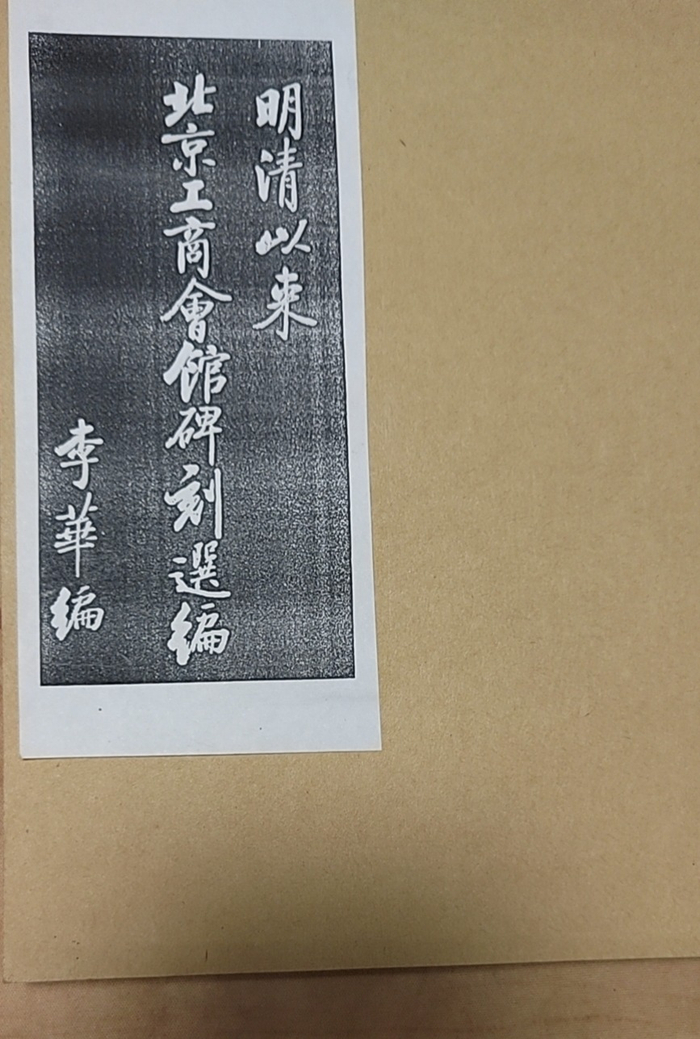 明清以来
北京工商會館碑刻選編
李華編